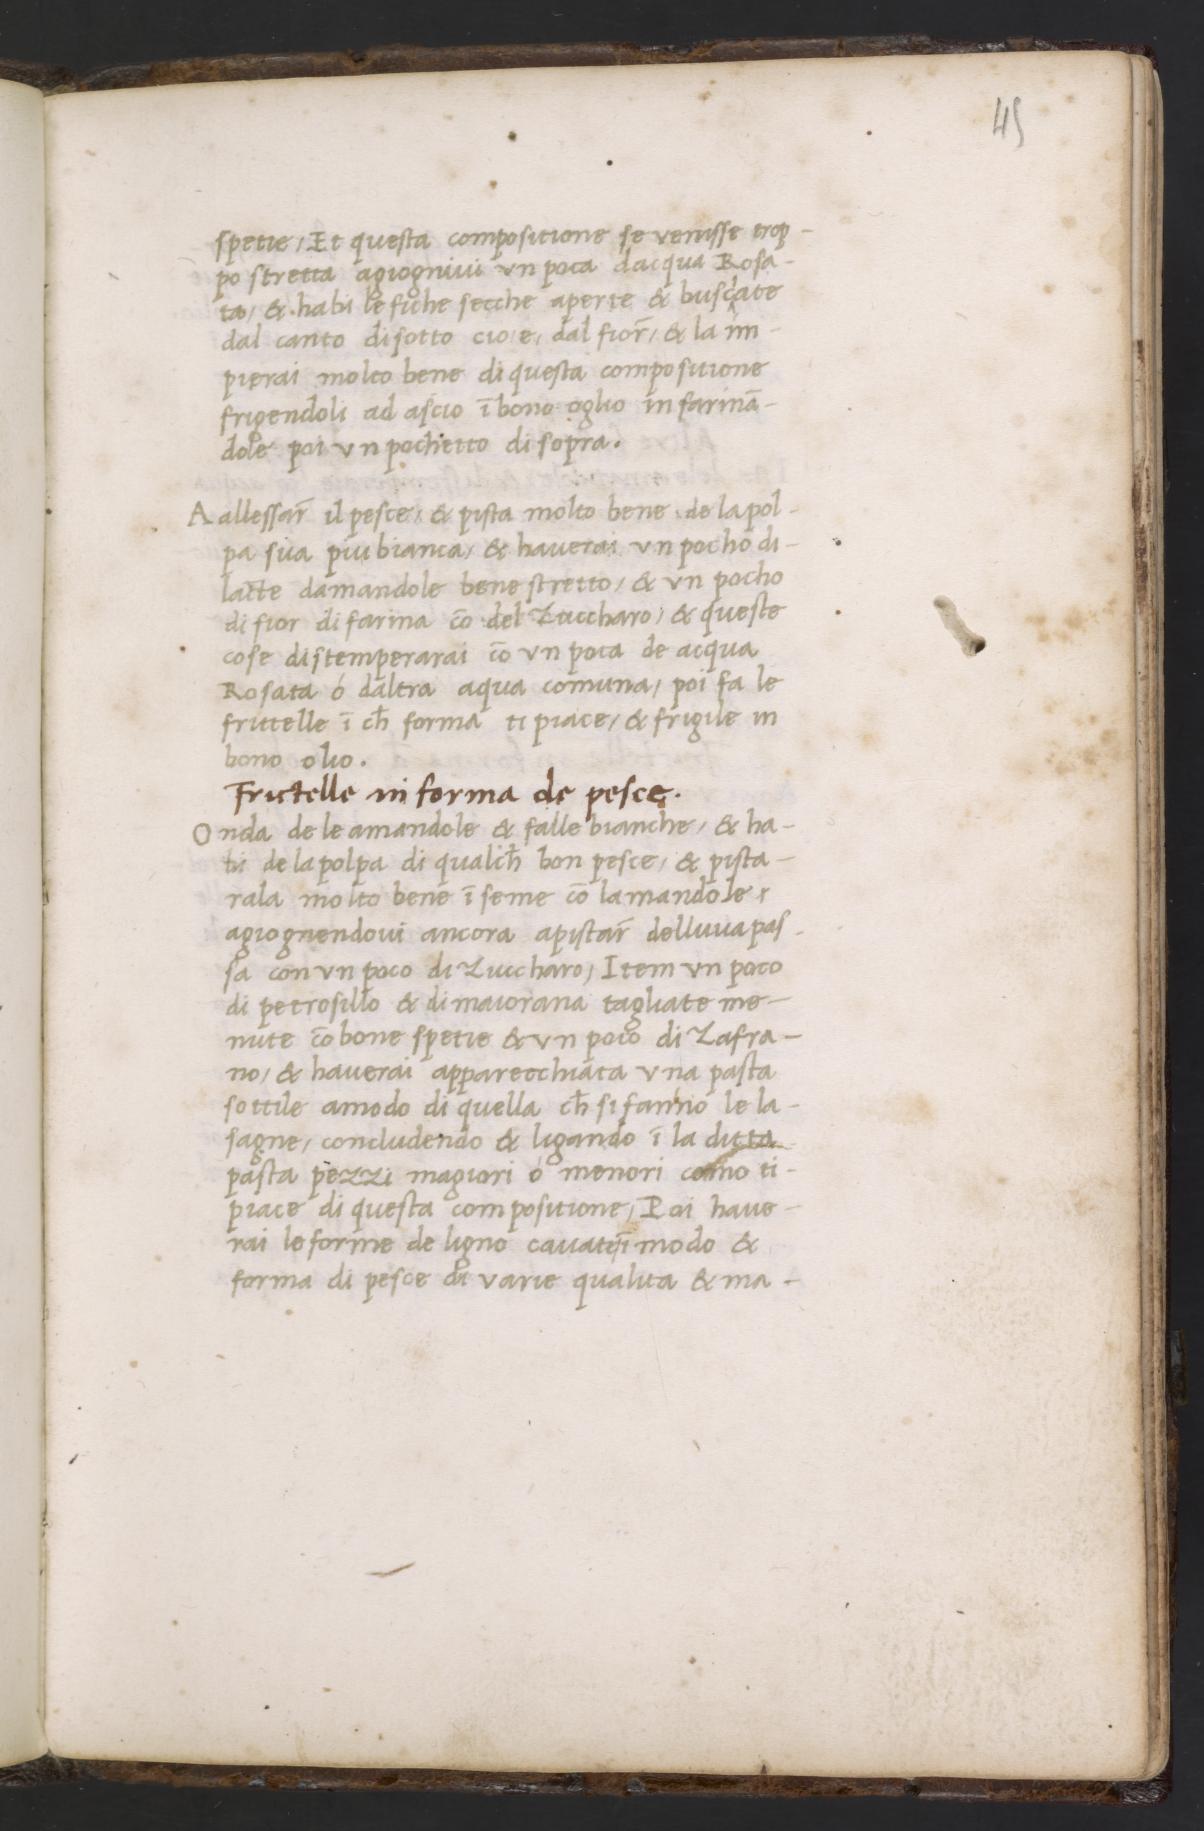 45
spetie, Et questa compositione se venisse trop-
po stretta agiognivi un poca dacqua Rosa-
ta, & habi le fiche secche aperte & buscate
dal canto di sotto cio e, dal fior̃, & la im-
pierai molto bene di questa compositione
frigendoli ad ascio ĩ bono oglio infarinã-
dole poi un pochetto di sopra.
A allessar̃ il pesce, & pista molto bene de la pol-
pa sua piu bianca, & haverai un pocho di-
latte damandole bene stretto, & un pocho
di fior di farina cõ del Zuccharo, & queste
cose distemperarai cõ un poca de acqua
Rosata ó daltra aqua comuna, poi fa le
frittelle ĩ ch̃ forma ti piace, & frigile in
bono olio.
Frictelle in forma de pesce.
Onda de le amandole & falle bianche, & ha-
bi de la polpa di qualch̃ bon pesce, & pista-
rala molto bene ĩ seme cõ lamandole,
agiognendovi ancora apistar̃ delluva pas-
sa con un poco di Zuccharo, Item un poco
di petrosillo & di maiorana tagliate me-
nute cõ bone spetie & un poco di Zafra-
no, & haverai apparecchiata una pasta
sottile amodo di quella ch̃ si fanno le la-
sagne, concludendo & ligando ĩ la ditta
pasta pezzi magiori ó menori como ti-
piace di questa compositione, Poi have-
rai le forme de ligno cavate ĩ modo &
forma di pesce di varie qualita & ma-